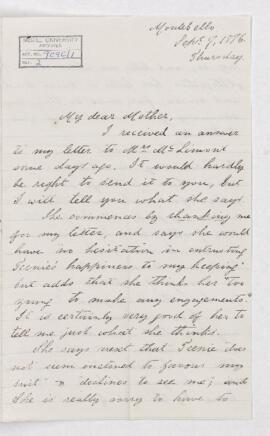 Montebello
Sept. 7, 1876.
Thursday.
McGILL UNIVERSITY
ARCHIVES
ACC. NO.
REF. 2
My dear Mother,
I received an answer
to my letter to Mrs. McLimont
some days ago. It would hardly
be right to send it to you, but
I will tell you what she says.
She commences by thanking me
for my letter, and says she would
have no hesitation in entrusting
Teenie's happiness to my keeping
but adds that she thinks her "too
young to make any engagements".
It is certainly very good of her to
tell me just what she thinks.
She says next that Teenie "does
not seem inclined to favour my
suit" & "declines to see me"; and
she is really sorry to have to